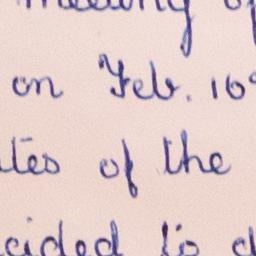 meeting
on Feb. 16
of the
cided to